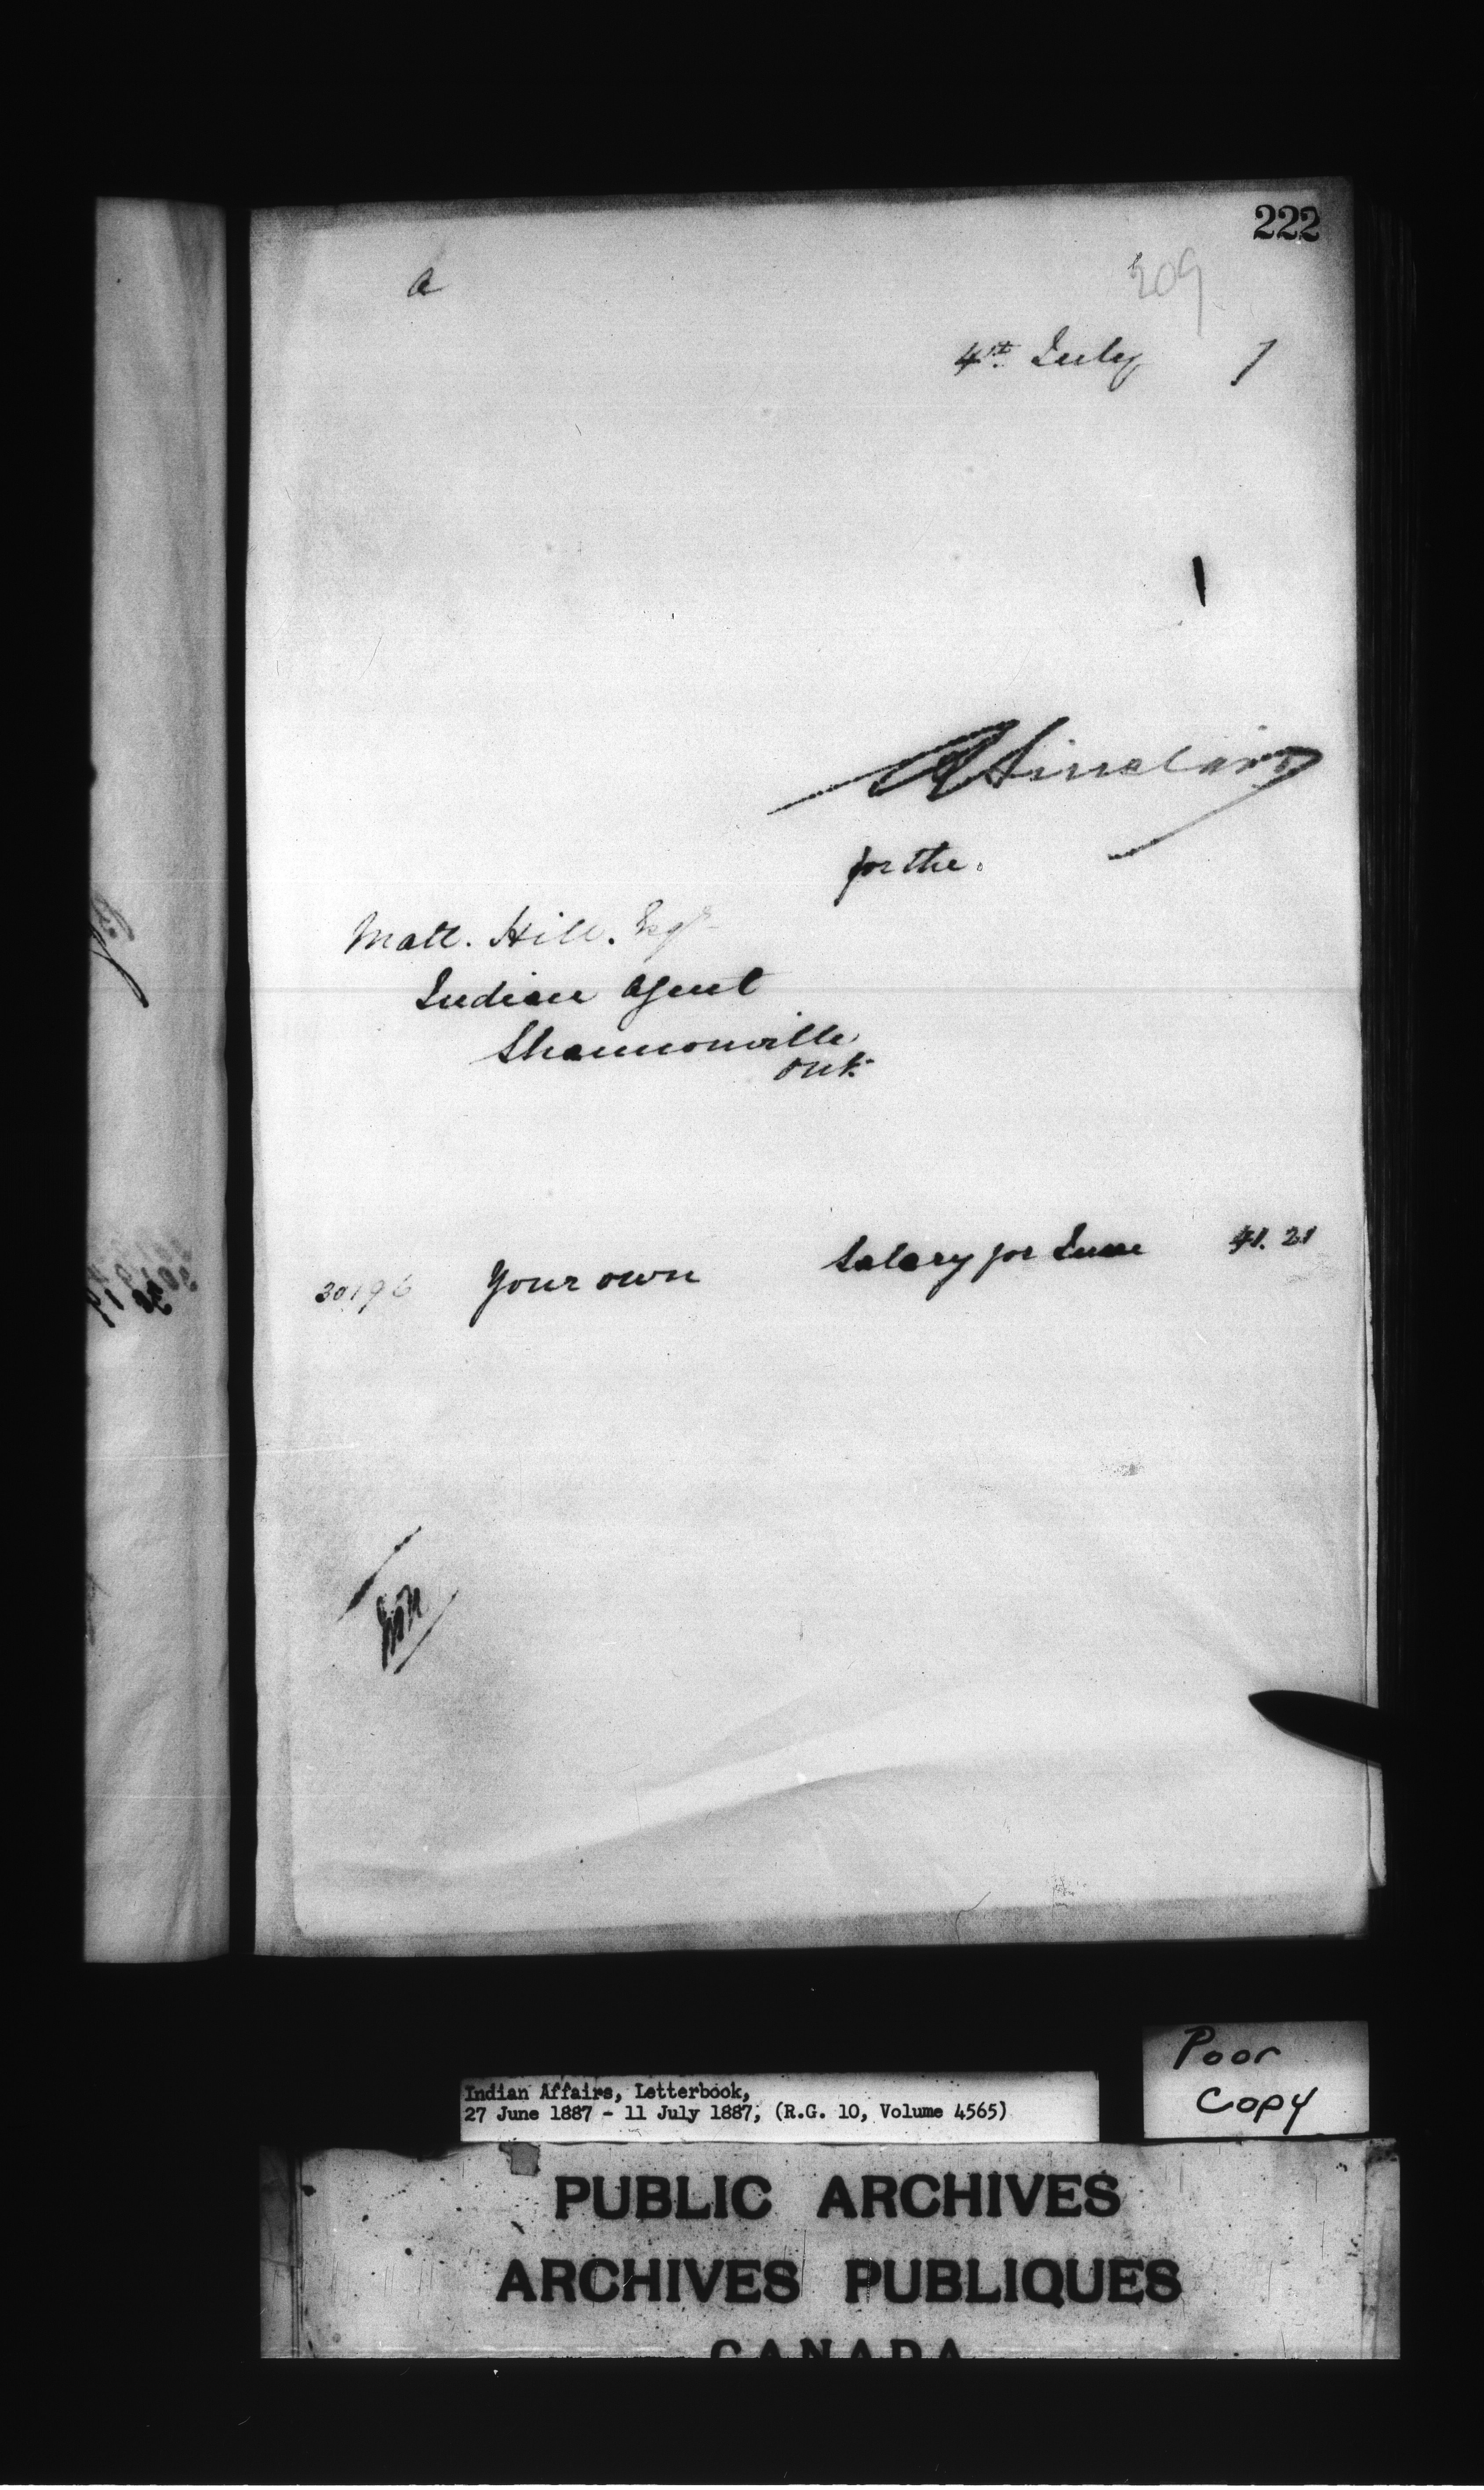 222
209
a
4th July 7
1
A Sinclair
for the.
Matt. Hill. Esqr
Indian Agent
Shannonville
Ont.
30196 Your own Salary for June 41.21
Poor
Copy
Indian Affairs, Letterbook,
27 June 1887 - 11 July 1887, (R.G. 10, Volume 4565)
PUBLIC ARCHIVES
ARCHIVES PUBLIQUES
CANADA